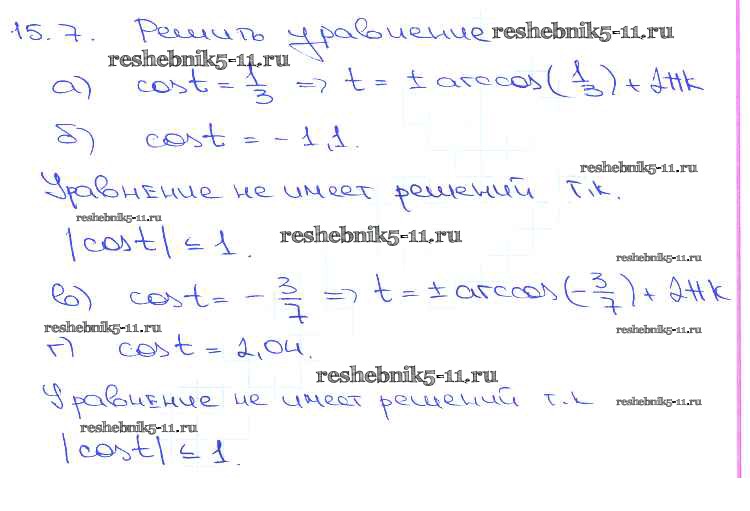 15.7. Решить уравнение reshebnik5-11.ru
reshebnik5-11.ru
а) cost = 1/3 => t = ± arccos(1/3) + 2πk
б) cost = -1,1.
reshebnik5-11.ru
Уравнение не имеет решений т.к.
reshebnik5-11.ru
|cost| ≤ 1. reshebnik5-11.ru
reshebnik5-11.ru
в) cost = - 3/7 => t = ± arccos(-3/7) + 2πk
reshebnik5-11.ru reshebnik5-11.ru
г) cost = 2,04.
reshebnik5-11.ru
Уравнение не имеет решений т.к reshebnik5-11.ru
reshebnik5-11.ru
|cost| ≤ 1.